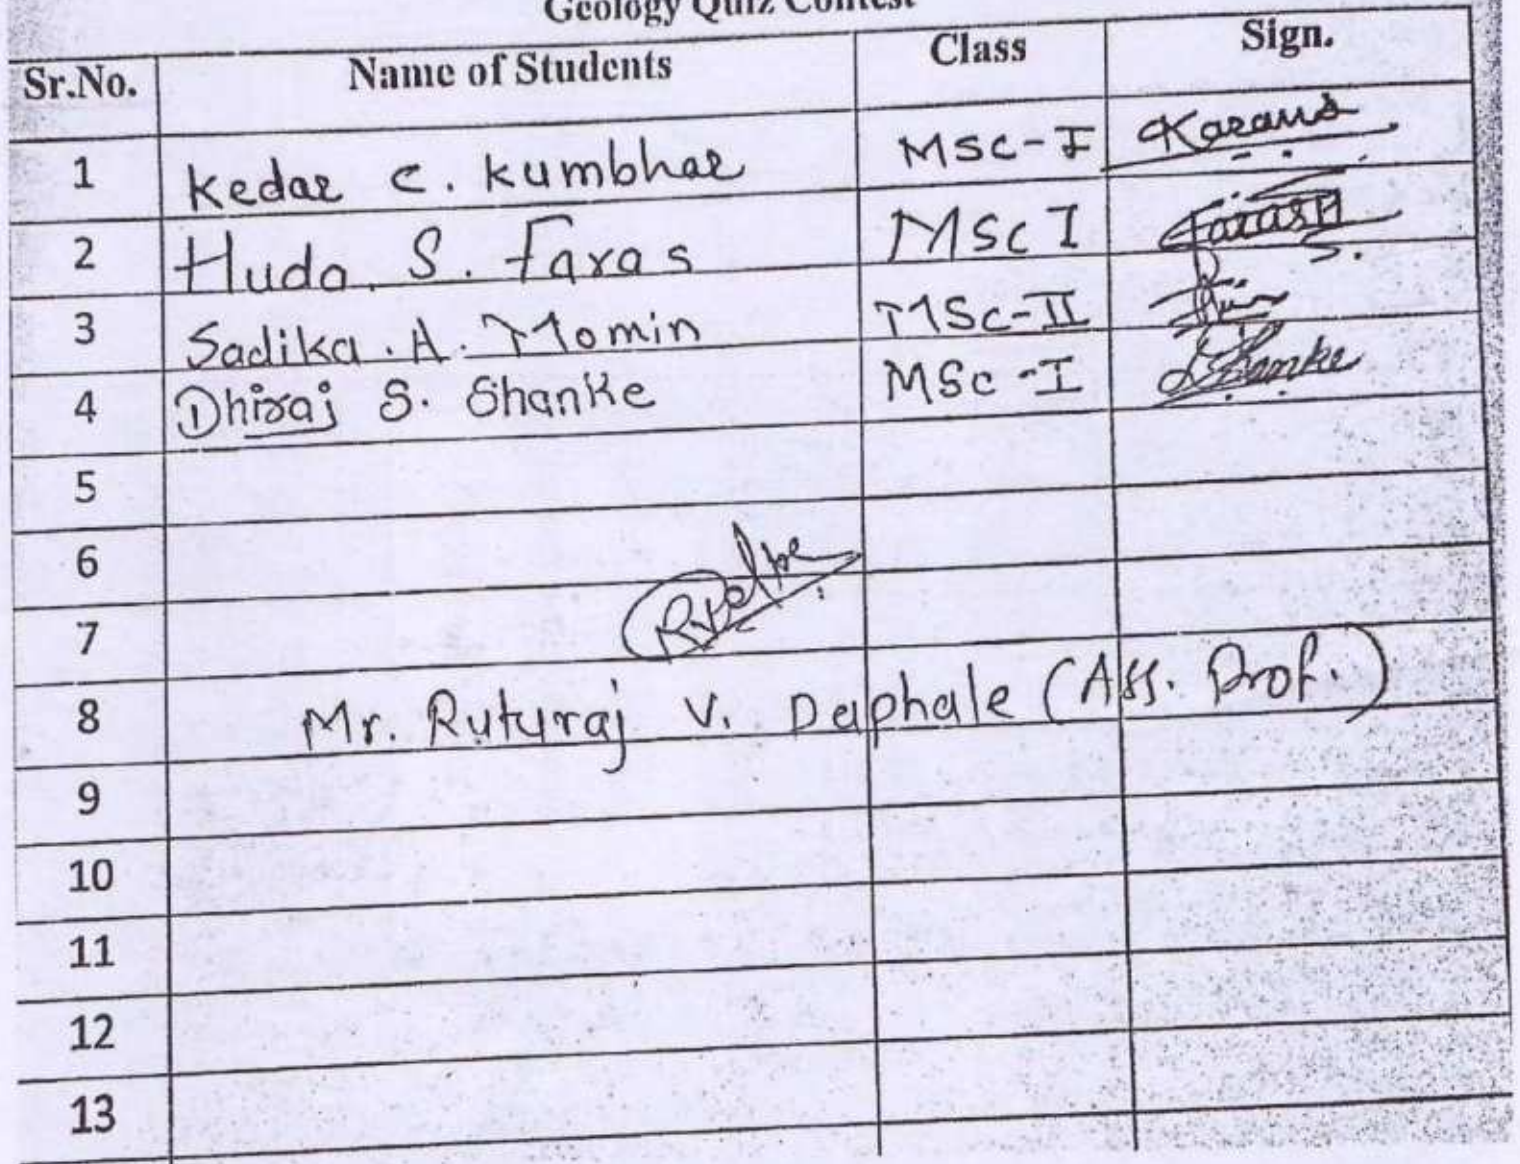 Geology Quiz Contest
Sr.No. Name of Students Class Sign.
1 Kedar C. Kumbhar MSC-I
2 Huda S. Faras MSc I
3 Sadika. A. Momin MSc-II
4 Dhiraj S. Shanke MSc-I
5
6
7
8 Mr. Ruturaj V. Daphale (Ass. Prof.)
9
10
11
12
13